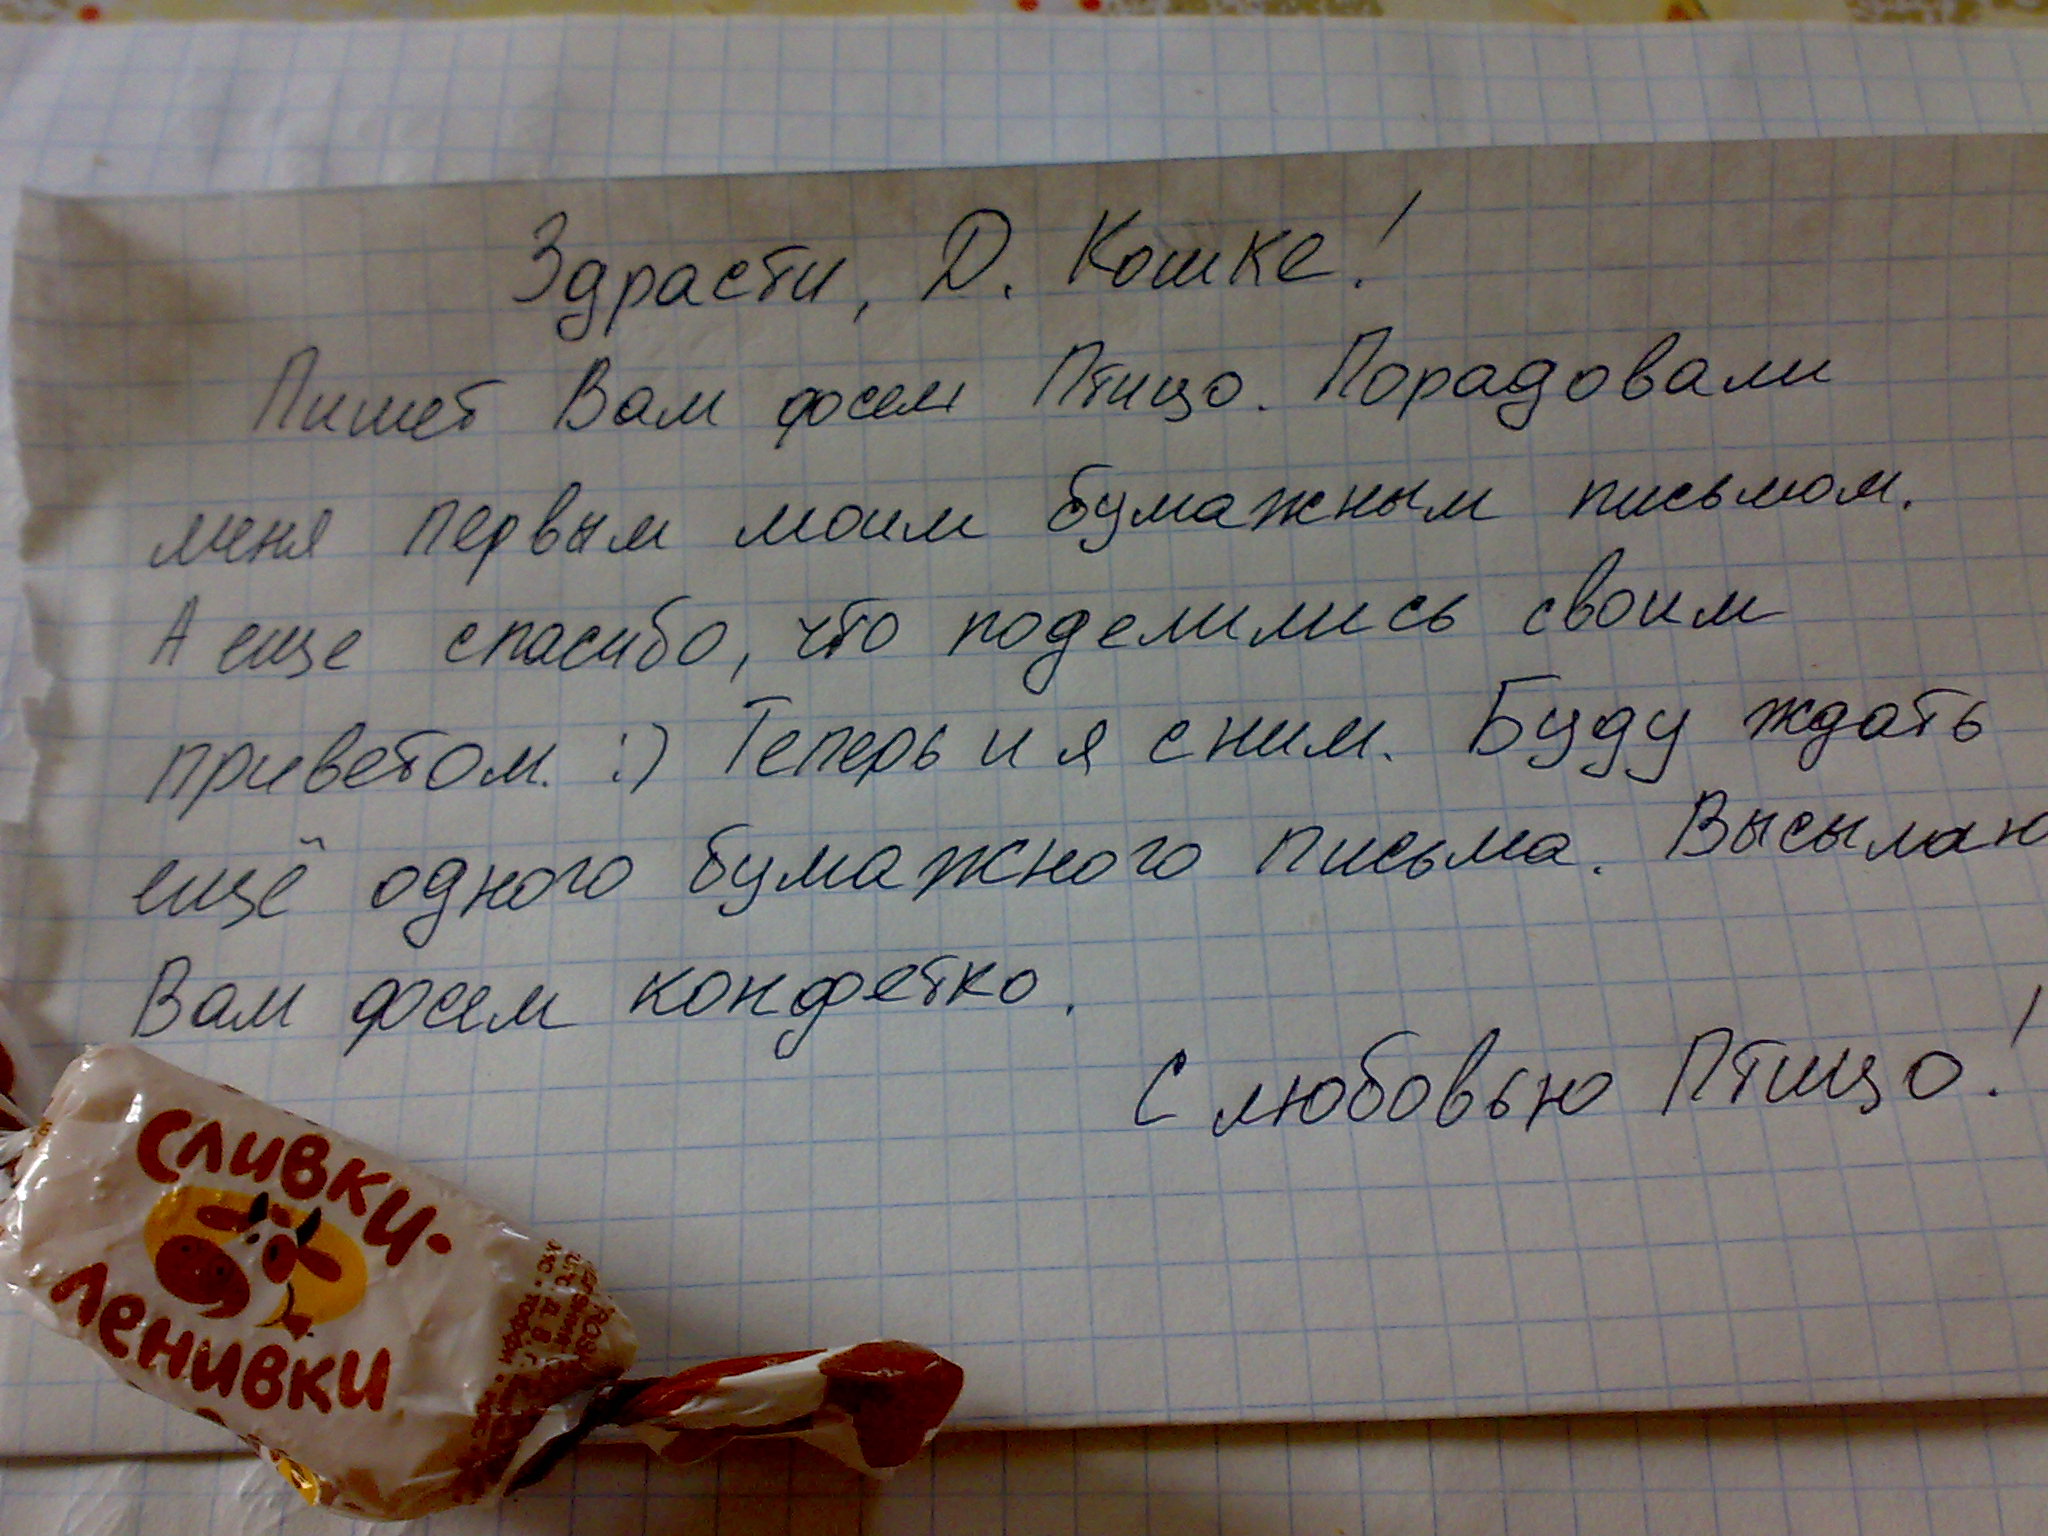 Здрасти, Д. Кошке!
Пишет Вам фсем Птицо. Порадовали
меня первым моим бумажным письмом.
А еще спасибо, что поделились своим
приветом. :) Теперь и я с ним. Буду ждать
ещё одного бумажного письма. Высылаю
Вам фсем конфетко.
С любовью Птицо!
Сливки-
Ленивки